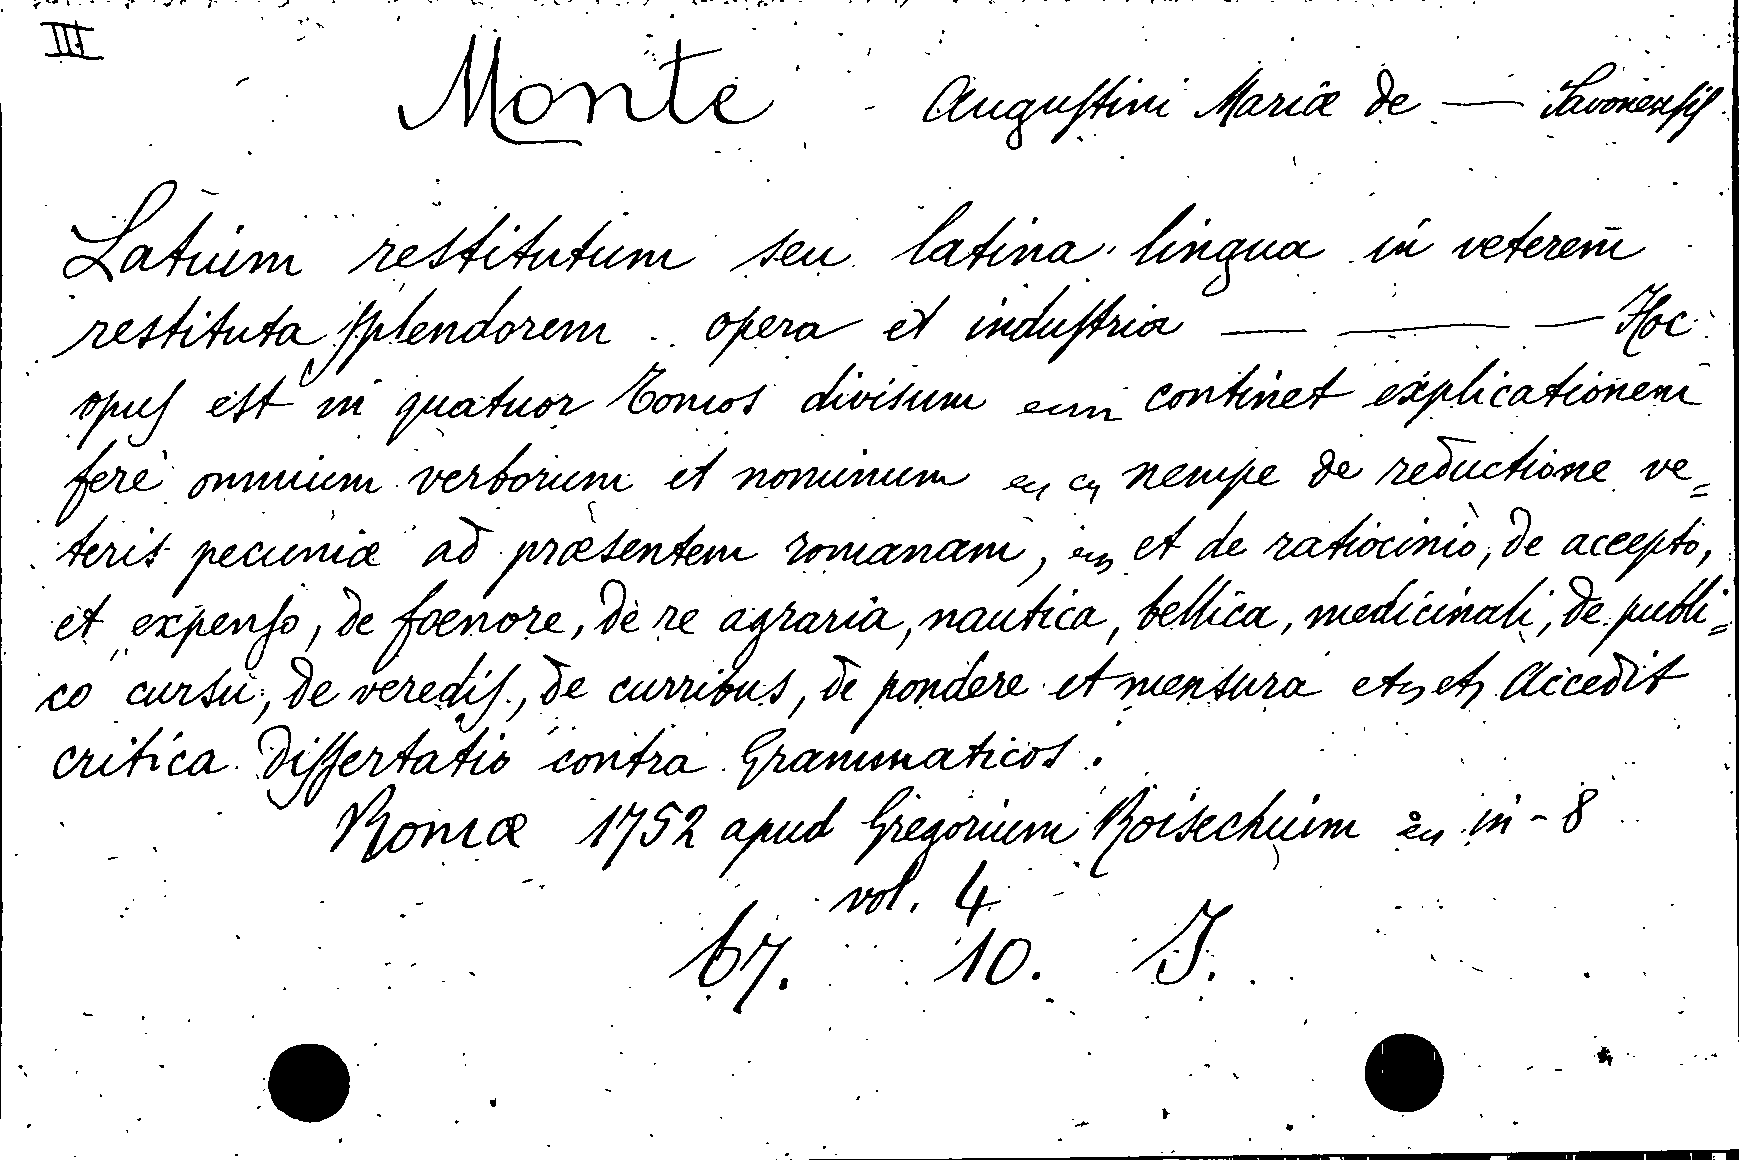 III
Monte Augustini Mariæ de — Savonensis
Latium restitutum seu latina lingua in veterem
restituta splendorem opera et industria — — — Hoc
opus est in quatuor Tomos divisum continet explicationem
fere omnium verborum et nominum nempe de reductione ve=
teris pecuniæ ad præsentem romanam, et de ratiocinio, de accepto,
et expenso, de fœnore, de re agraria, nautica, bellica, medicinali, de publi=
co cursu, de veredis, de curribus, de pondere et mensura Accedit
critica Dissertatio contra Grammaticos.
Romæ 1752 apud Gregorium Roisechium in-8
vol. 4
67. 10. J.